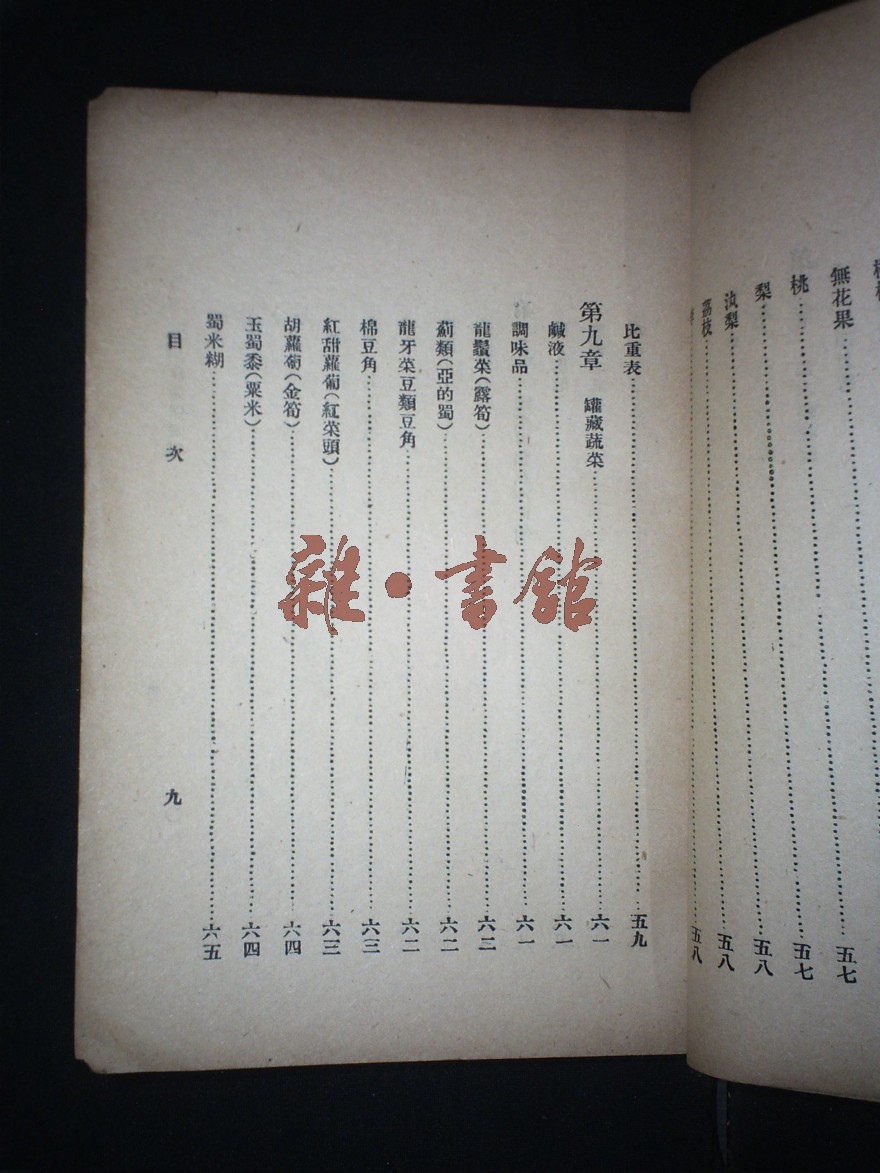 無花果……五七
桃……五七
梨……五八
汝梨……五八
荔枝……五八
比重表……五九
第九章 罐藏蔬菜……六一
鹹液……六一
調味品……六一
龍鬚菜(露筍)……六二
薊類(亞的蜀)……六二
龍牙菜豆類豆角……六二
棉豆角……六三
紅甜蘿蔔(紅菜頭)……六三
胡蘿蔔(金筍)……六四
玉蜀黍(粟米)……六四
蜀米糊……六五
目次
九
雜·書館